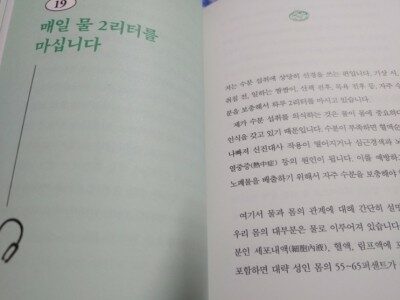 19
매일 물 2리터를
마십니다
저는 수분 섭취에 상당히 신경을 쓰는 편입니다. 기상 시,
취침 전, 일하는 짬짬이, 산책 전후, 목욕 전후 등, 자주 수
분을 보충해서 하루 2리터를 마시고 있습니다.
제가 수분 섭취를 의식하는 것은 물이 몸에 중요하다
인식을 갖고 있기 때문입니다. 수분이 부족하면 혈액순
나빠져 신진대사 작용이 떨어지거나 심근경색과 뇌
열중증(熱中症) 등의 원인이 됩니다. 이를 예방하고
노폐물을 배출하기 위해서 자주 수분을 보충해야
여기서 물과 몸의 관계에 대해 간단히 설명
우리 몸의 대부분은 물로 이루어져 있습니다
분인 세포내액(細胞內液), 혈액, 림프액에
포함하면 대략 성인 몸의 55~65퍼센트가